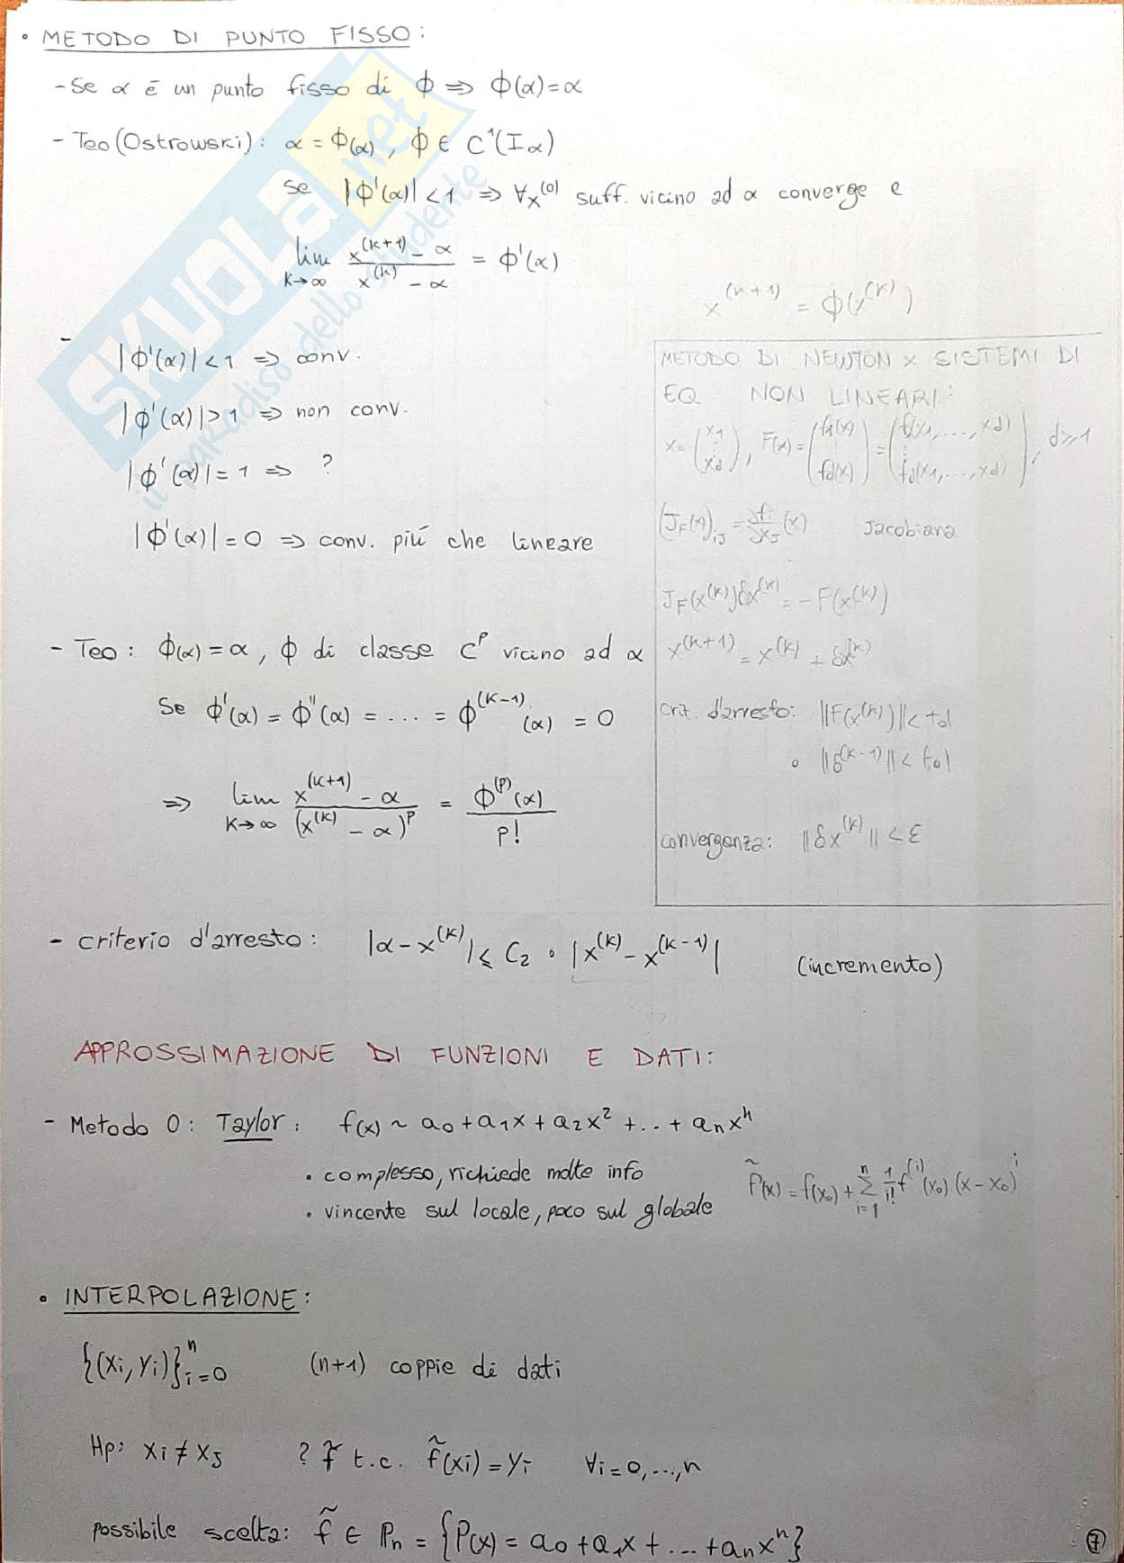 • METODO DI PUNTO FISSO:
- Se α é un punto fisso di Φ => Φ(α)=α
- Teo (Ostrowski): α = Φ(α), Φ ∈ C¹(Iα)
Se |Φ'(α)| < 1 => ∀x^(0) suff. vicino ad α converge e
lim k→∞ (x^(k+1) - α)/(x^(k) - α) = Φ'(α)
-
|Φ'(α)| < 1 => conv.
|Φ'(α)| > 1 => non conv.
|Φ'(α)| = 1 => ?
|Φ'(α)| = 0 => conv. piú che lineare
- Teo: Φ(α) = α, Φ di classe C^p vicino ad α
Se Φ'(α) = Φ''(α) = ... = Φ^(k-1)(α) = 0
=> lim k→∞ (x^(k+1) - α)/(x^(k) - α)^p = Φ^(p)(α)/p!
x^(k+1) = Φ(x^(k))
METODO DI NEWTON x SISTEMI DI
EQ. NON LINEARI:
x = (x1 ⋮ xd), F(x) = (f1(x) ⋮ fd(x)) = (f1(x1,....,xd) ⋮ fd(x1,...,xd)), d≥1
(J_F(x))_ij = ∂fi/∂xj (x) Jacobiana
J_F(x^(k)) δx^(k) = - F(x^(k))
x^(k+1) = x^(k) + δx^(k)
crit. d'arresto: ||F(x^(k))|| < tol
• ||δ^(k-1)|| < tol
converganza: ||δx^(k)|| < ε
- criterio d'arresto: |α - x^(k)| ≤ C₂ • |x^(k) - x^(k-1)| (incremento)
APPROSSIMAZIONE DI FUNZIONI E DATI:
- Metodo 0: Taylor: f(x) ~ a₀ + a₁x + a₂x² + .. + aₙxⁿ
• complesso, richiede molte info
• vincente sul locale, poco sul globale
f̃(x) = f(x₀) + Σ_{i=1}^{n} 1/i! f^(i)(x₀) (x - x₀)^i
• INTERPOLAZIONE:
{(xi, yi)}ⁿ_{i=0} (n+1) coppie di dati
Hp: xi ≠ xj ? f̃ t.c. f̃(xi) = yi ∀i=0,...,n
possibile scelta: f̃ ∈ ℙn = {P(x) = a₀ + a₁x + ... + aₙxⁿ}
7
SKUOLA.net
il paradiso dello studente